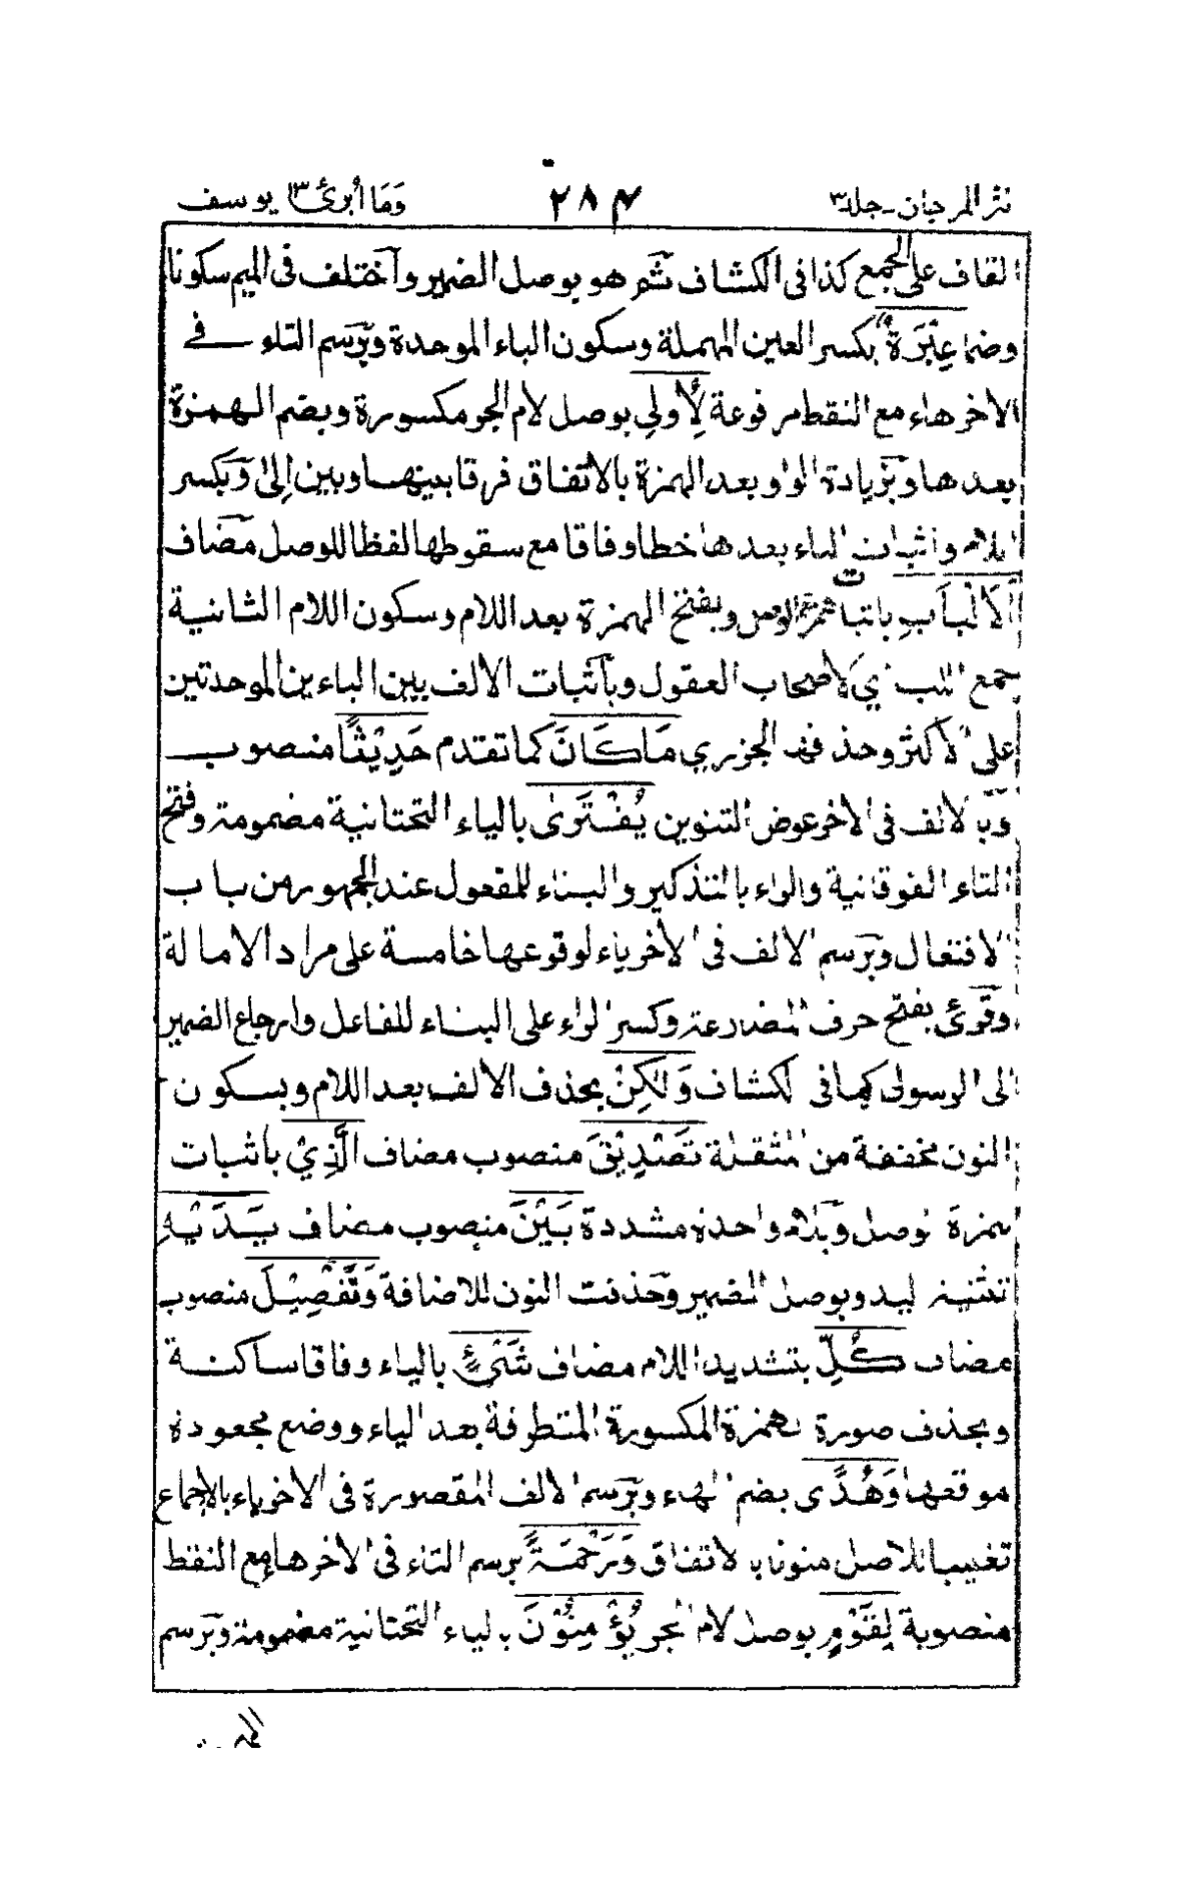 نثر المرجان - جلد٣ ٢٨٤ وَمَا أبرئ ١٣ يوسف
القاف على الجمع كذا فى الكشاف ثم هو بوصل الضمير واختلف فى الميم سكونا
وضما عِبْرَةٌ بكسر العين المهملة وسكون الباء الموحدة وبرسم التاء فے
الاخر هاء مع النقط مرفوعة لِأُولِي بوصل لام الجر مكسورة وبضم الهمزة
بعدها وبزيادة الواو بعد الهمزة بالاتفاق فرقا بينها وبين إِلىٰ وبكسر
اللام واثبات الياء بعدها خطا وفاقا مع سقوطها لفظا للوصل مضاف
اَلْأَلْبَابِ باثبات همزة الوصل وبفتح الهمزة بعد اللام وسكون اللام الثانية
جمع اللب اي لاصحاب العقول وباثبات الالف بين الباءين الموحدتين
على الاكثر وحذفها الجزري مَا كَانَ كما تقدم حَدِيْثًا منصوب
وبالالف فى الاخر عوض التنوين يُفْتَرَىٰ بالياء التحتانية مضمومة وفتح
التاء الفوقانية والراء بالتذكير والبناء للمفعول عند الجمهور من باب
الافتعال وبرسم الالف فى الاخر ياء لوقوعها خامسة على مراد الامالة
وقرئ بفتح حرف المضارعة وكسر الراء على البناء للفاعل وارجاع الضمير
الى الرسول كما فى الكشاف وَلٰكِنْ بحذف الالف بعد اللام وبسكون
النون مخففة من المثقلة تَصْدِيْقَ منصوب مضاف الَّذِيْ باثبات
همزة الوصل وبلام واحدة مشددة بَيْنَ منصوب مضاف يَدَيْهِ
تثنية اليد وبوصل الضمير وحذفت النون للاضافة وَتَفْصِيْلَ منصوب
مضاف كُلِّ بتشديد اللام مضاف شَيْءٍ بالياء وفاقا ساكنة
وبحذف صورة الهمزة المكسورة المتطرفة بعد الياء ووضع مجعودة
موقعها وَهُدًى بضم الهاء وبرسم الالف المقصورة فى الاخر ياء بالاجماع
تغليبا للاصل منونا بالاتفاق وَرَحْمَةً برسم التاء فى الاخر هاء مع النقط
منصوبة لِقَوْمٍ بوصل لام الجر يُؤْمِنُوْنَ بالياء التحتانية مضمومة وبرسم